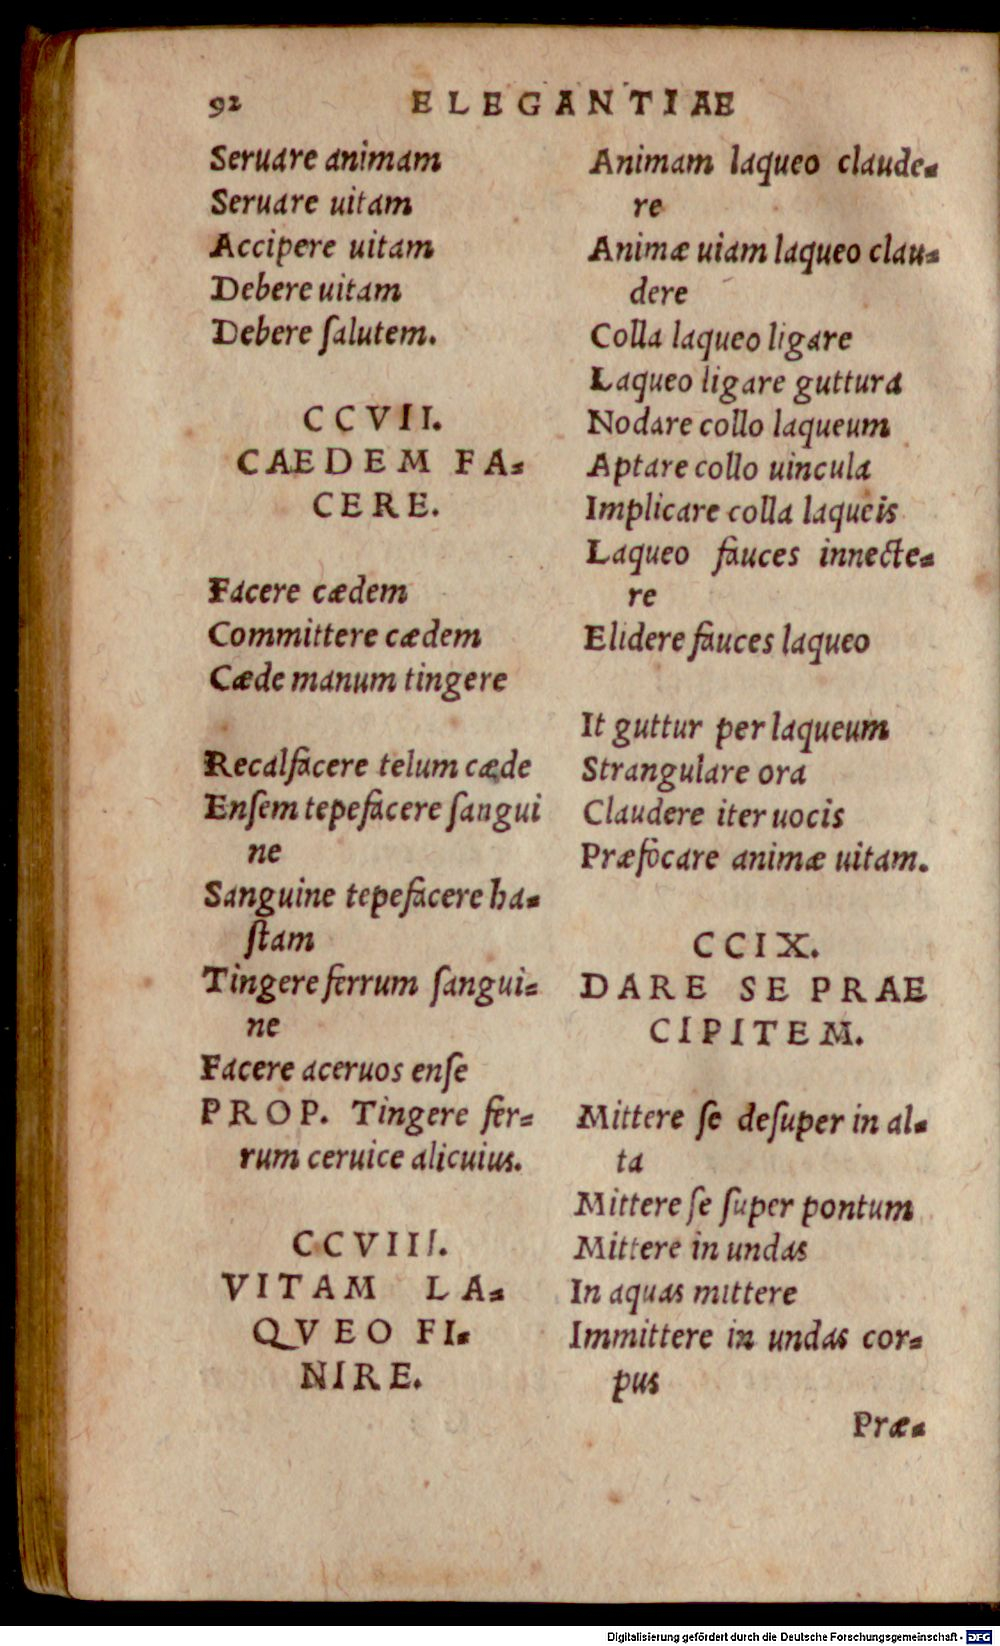 92 ELEGANTIAE
Seruare animam
Seruare uitam
Accipere uitam
Debere uitam
Debere ſalutem.
CCVII.
CAEDEM FA-
CERE.
Facere cædem
Committere cædem
Cæde manum tingere
Recalfacere telum cæde
Enſem tepefacere ſangui
ne
Sanguine tepefacere ha-
ſtam
Tingere ferrum ſangui-
ne
Facere aceruos enſe
PROP. Tingere fer-
rum ceruice alicuius.
CCVIII.
VITAM LA-
QVEO FI-
NIRE.
Animam laqueo claude-
re
Animæ uiam laqueo clau-
dere
Colla laqueo ligare
Laqueo ligare guttura
Nodare collo laqueum
Aptare collo uincula
Implicare colla laqueis
Laqueo fauces innecte-
re
Elidere fauces laqueo
It guttur per laqueum
Strangulare ora
Claudere iter uocis
Præfocare animæ uitam.
CCIX.
DARE SE PRAE
CIPITEM.
Mittere ſe deſuper in al-
ta
Mittere ſe ſuper pontum
Mittere in undas
In aquas mittere
Immittere in undas cor-
pus
Præ-
Digitalisierung gefördert durch die Deutsche Forschungsgemeinschaft - DFG